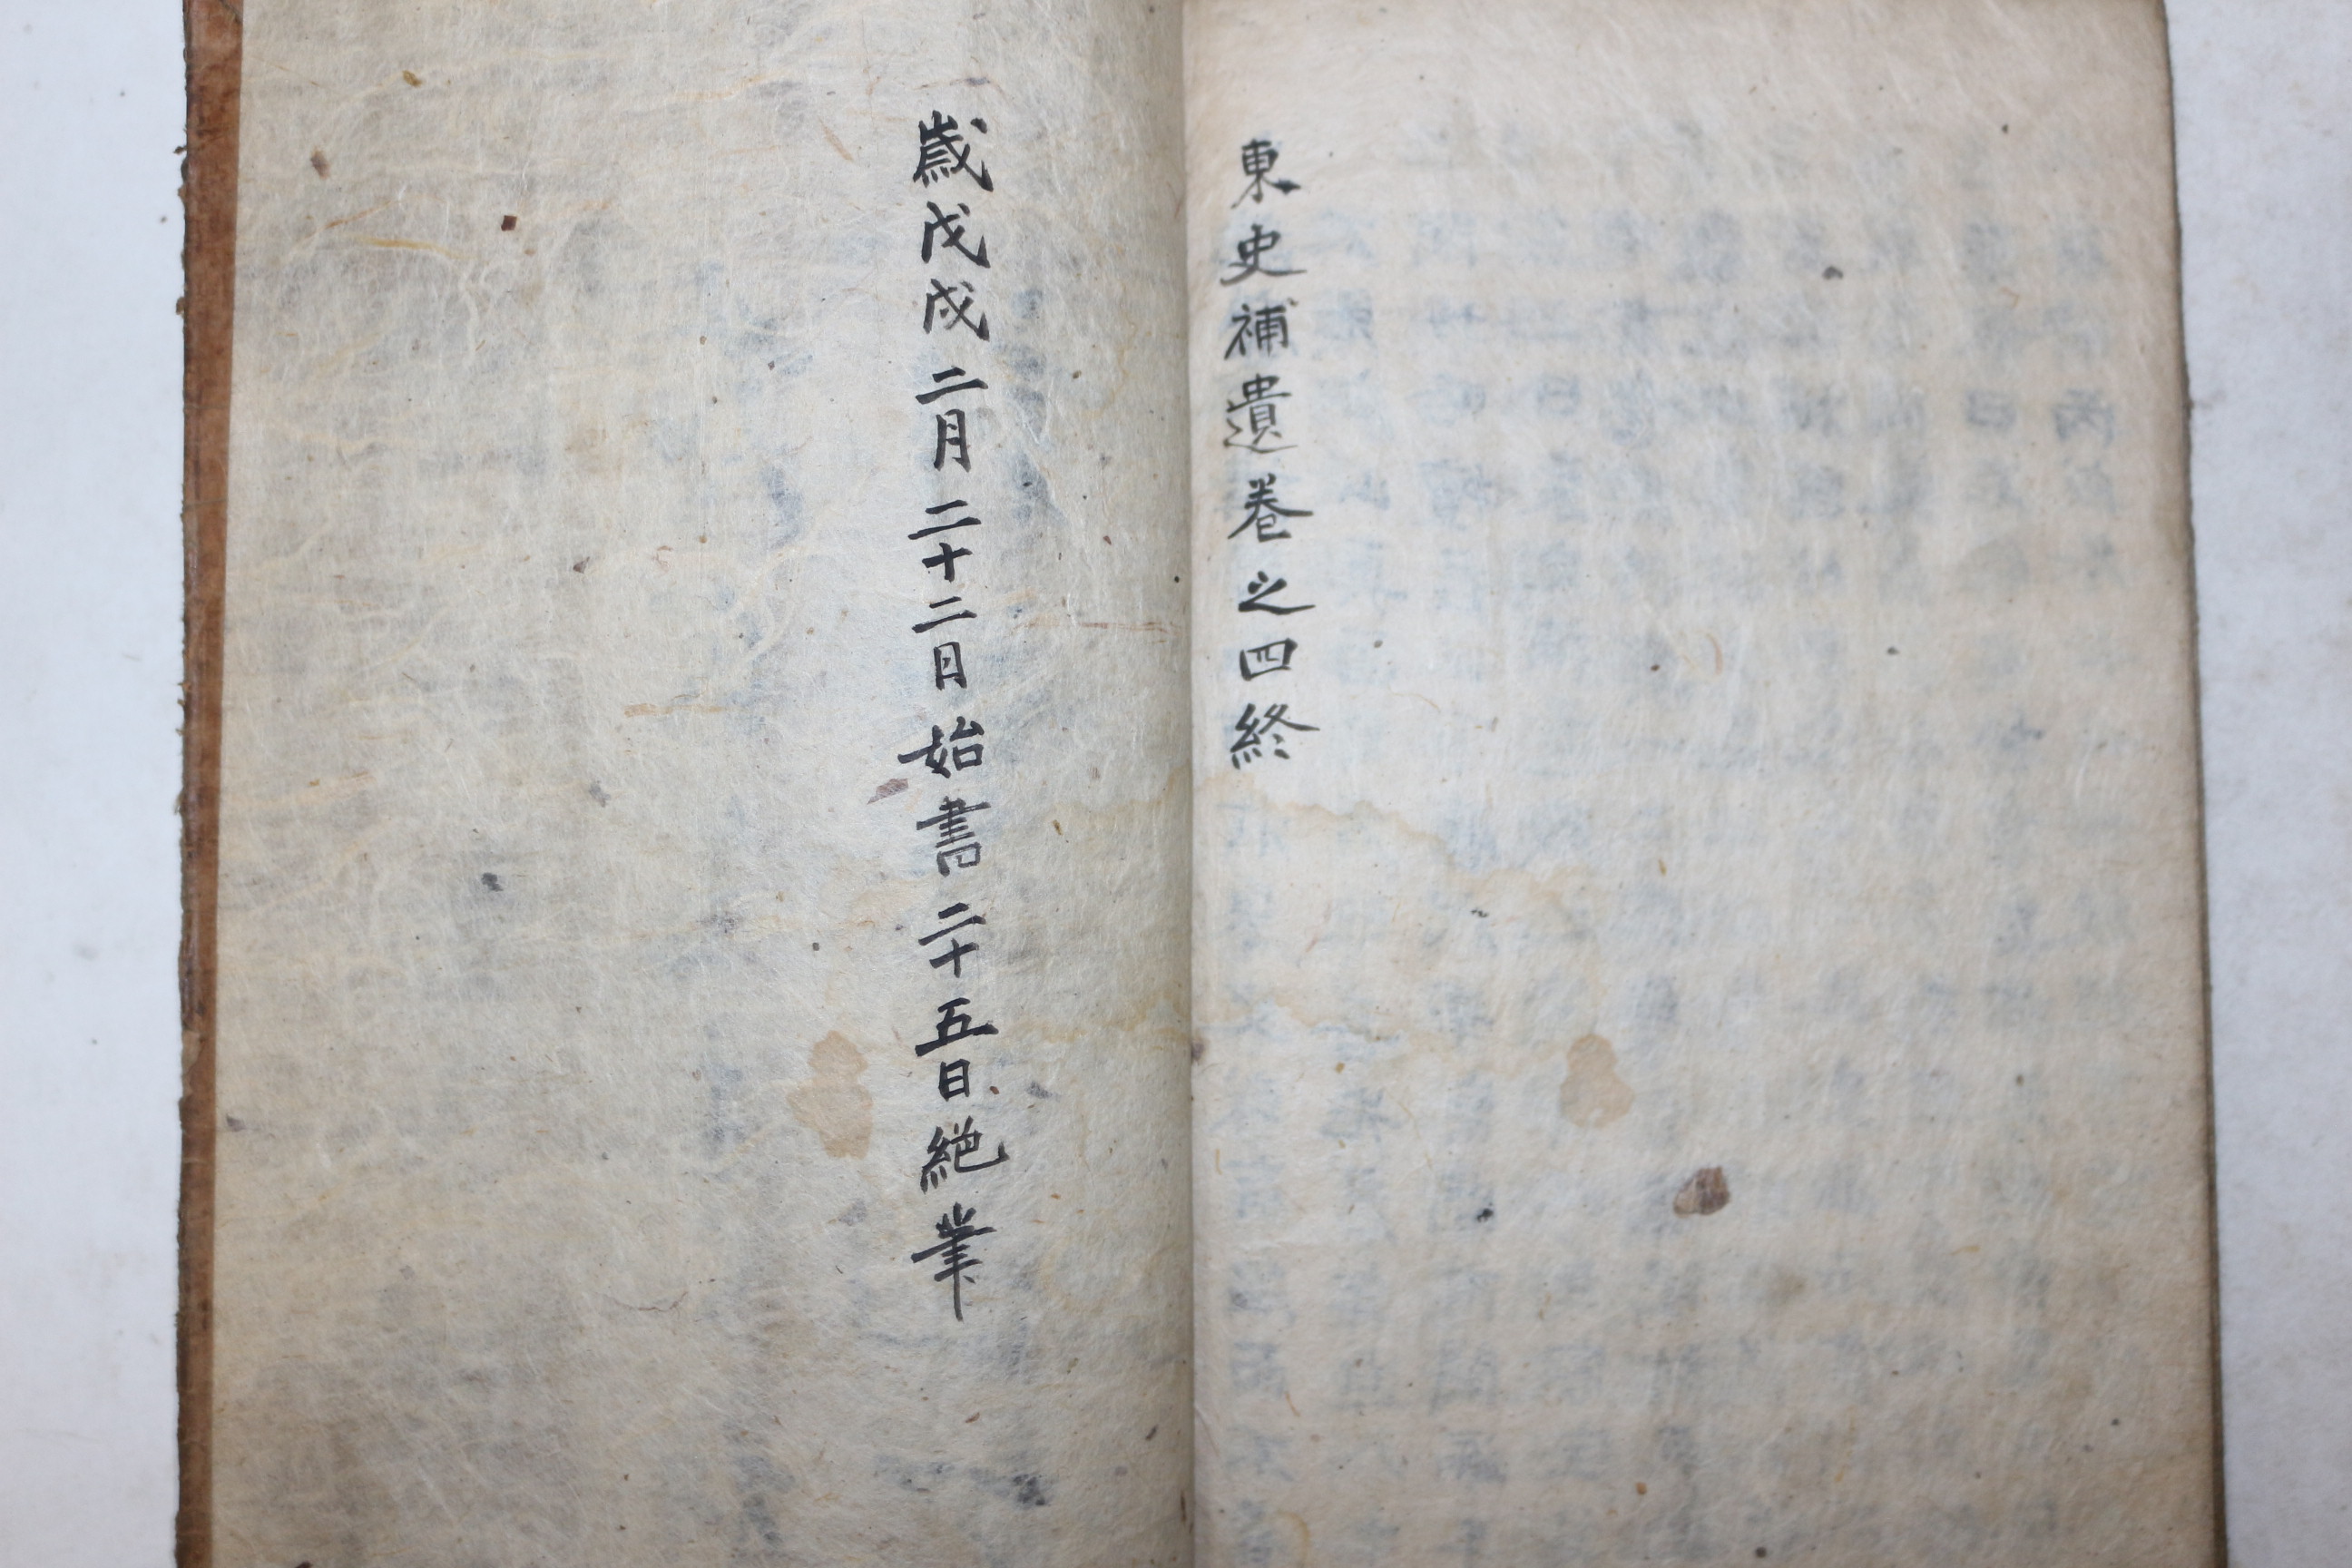 東史補遺卷之四終
歲戊戌二月二十二日始書二十五日絕業